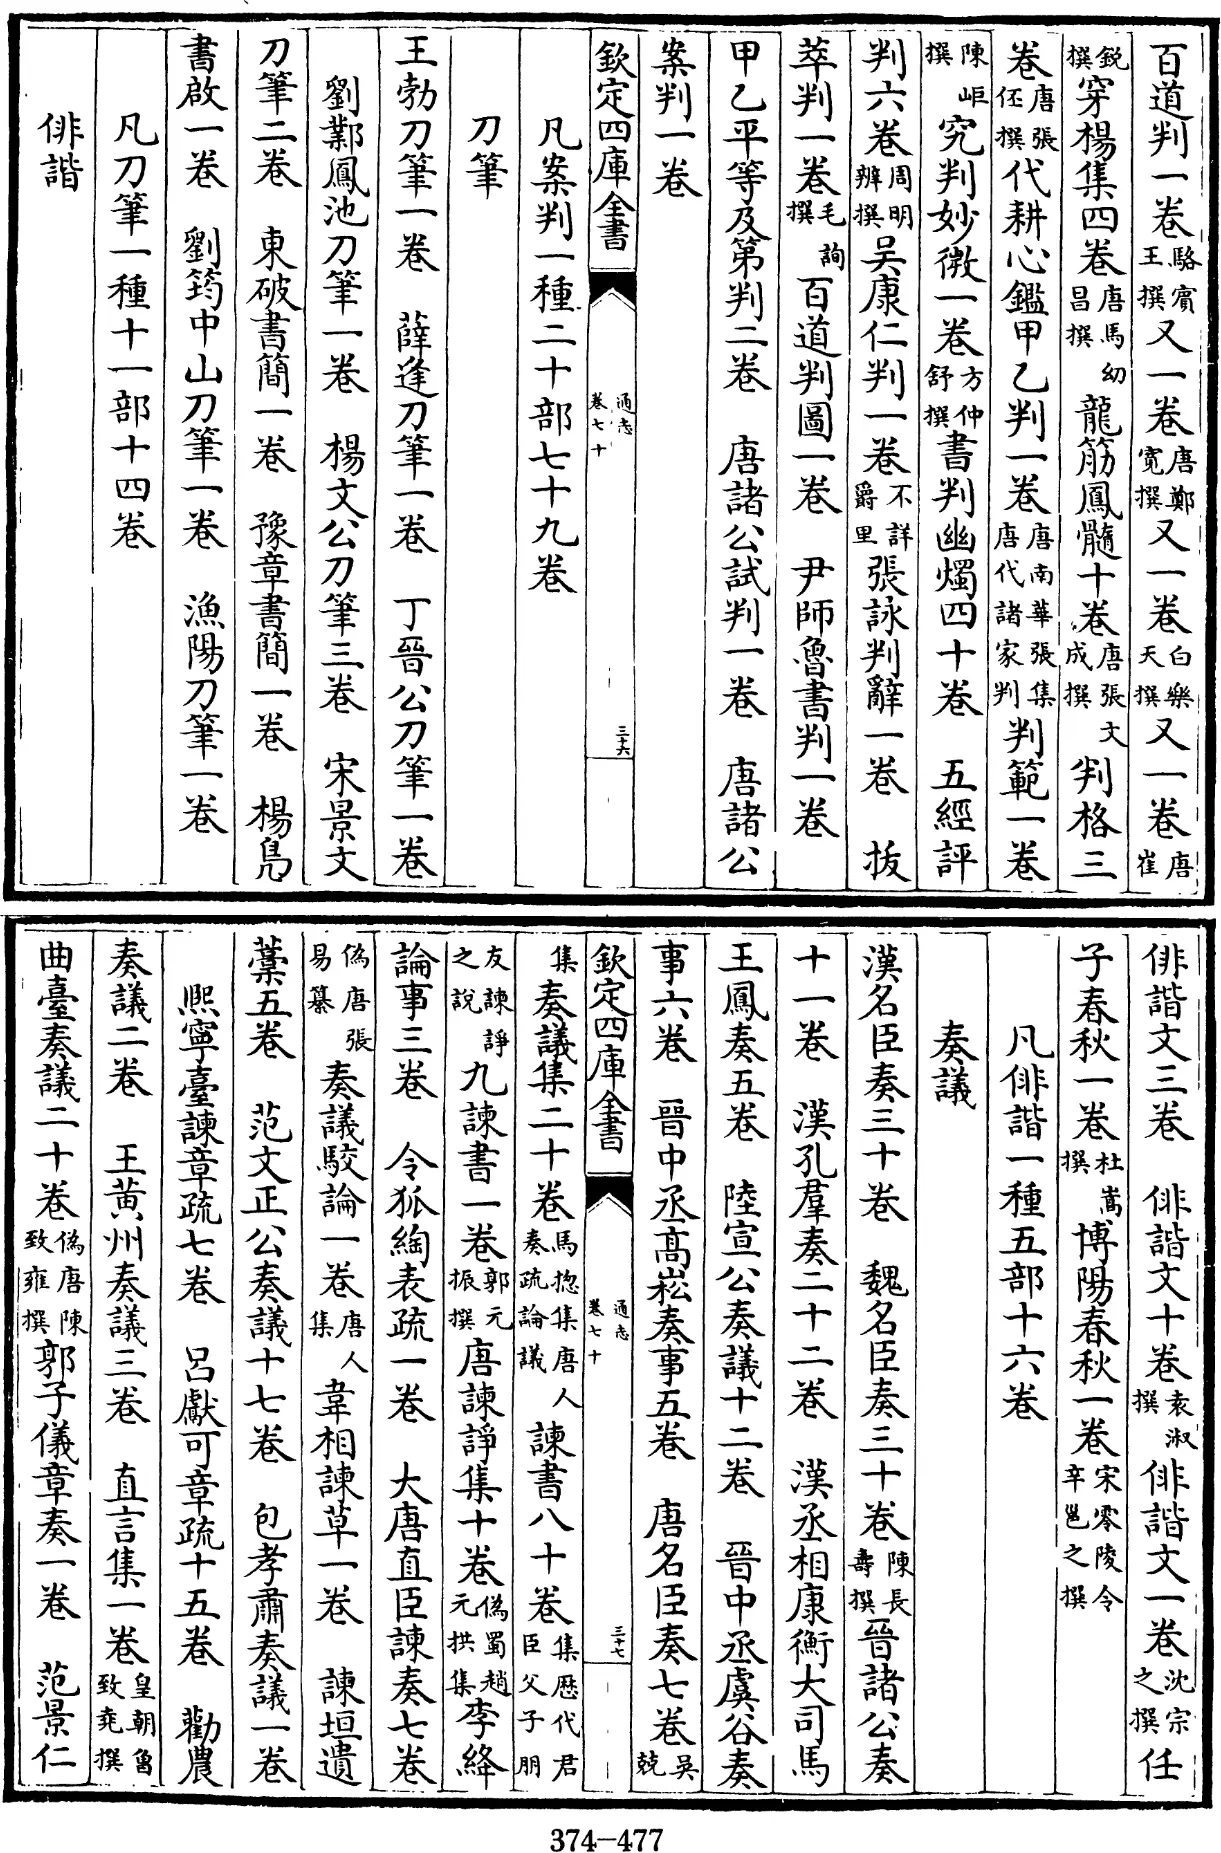 百道判一卷駱賓王撰又一卷唐鄭寬撰又一卷白樂天撰又一卷唐崔
銳撰穿楊集四卷唐馬幼昌撰龍筋鳳髓十卷唐張文成撰判格三
卷唐張伾撰代耕心鑑甲乙判一卷唐南華張集唐代諸家判判範一卷
陳岠撰究判妙微一卷方仲舒撰書判幽燭四十卷　五經評
判六卷周明辨撰吳康仁判一卷不詳爵里張詠判辭一卷　拔
萃判一卷毛詢撰百道判圖一卷　尹師魯書判一卷
甲乙平等及第判二卷　唐諸公試判一卷　唐諸公
案判一卷
欽定四庫全書　通志卷七十　三十六
凡案判一種二十部七十九卷
刀筆
王勃刀筆一卷　薛逢刀筆一卷　丁晉公刀筆一卷
劉鄴鳳池刀筆一卷　楊文公刀筆三卷　宋景文
刀筆二卷　東破書簡一卷　豫章書簡一卷　楊鳬
書啟一卷　劉筠中山刀筆一卷　漁陽刀筆一卷
凡刀筆一種十一部十四卷
俳諧
俳諧文三卷　俳諧文十卷袁淑撰俳諧文一卷沈宗之撰任
子春秋一卷杜嵩撰博陽春秋一卷宋零陵令辛邕之撰
凡俳諧一種五部十六卷
奏議
漢名臣奏三十卷　魏名臣奏三十卷陳長壽撰晉諸公奏
十一卷　漢孔羣奏二十二卷　漢丞相康衡大司馬
王鳳奏五卷　陸宣公奏議十二卷　晉中丞虞谷奏
事六卷　晉中丞高崧奏事五卷　唐名臣奏七卷吳兢
欽定四庫全書　通志卷七十　三十七
集奏議集二十卷馬揔集唐人奏疏論議諫書八十卷集歷代君臣父子朋
友諫諍之說九諫書一卷郭元振撰唐諫諍集十卷偽蜀趙元拱集李絳
論事三卷　令狐綯表疏一卷　大唐直臣諫奏七卷
偽唐張易纂奏議駮論一卷唐人集韋相諫草一卷　諫垣遺
藁五卷　范文正公奏議十七卷　包孝肅奏議一卷
熙寧臺諫章疏七卷　呂獻可章疏十五卷　勸農
奏議二卷　王黃州奏議三卷　直言集一卷皇朝魯致堯撰
曲臺奏議二十卷偽唐陳致雍撰郭子儀章奏一卷　范景仁
374-477